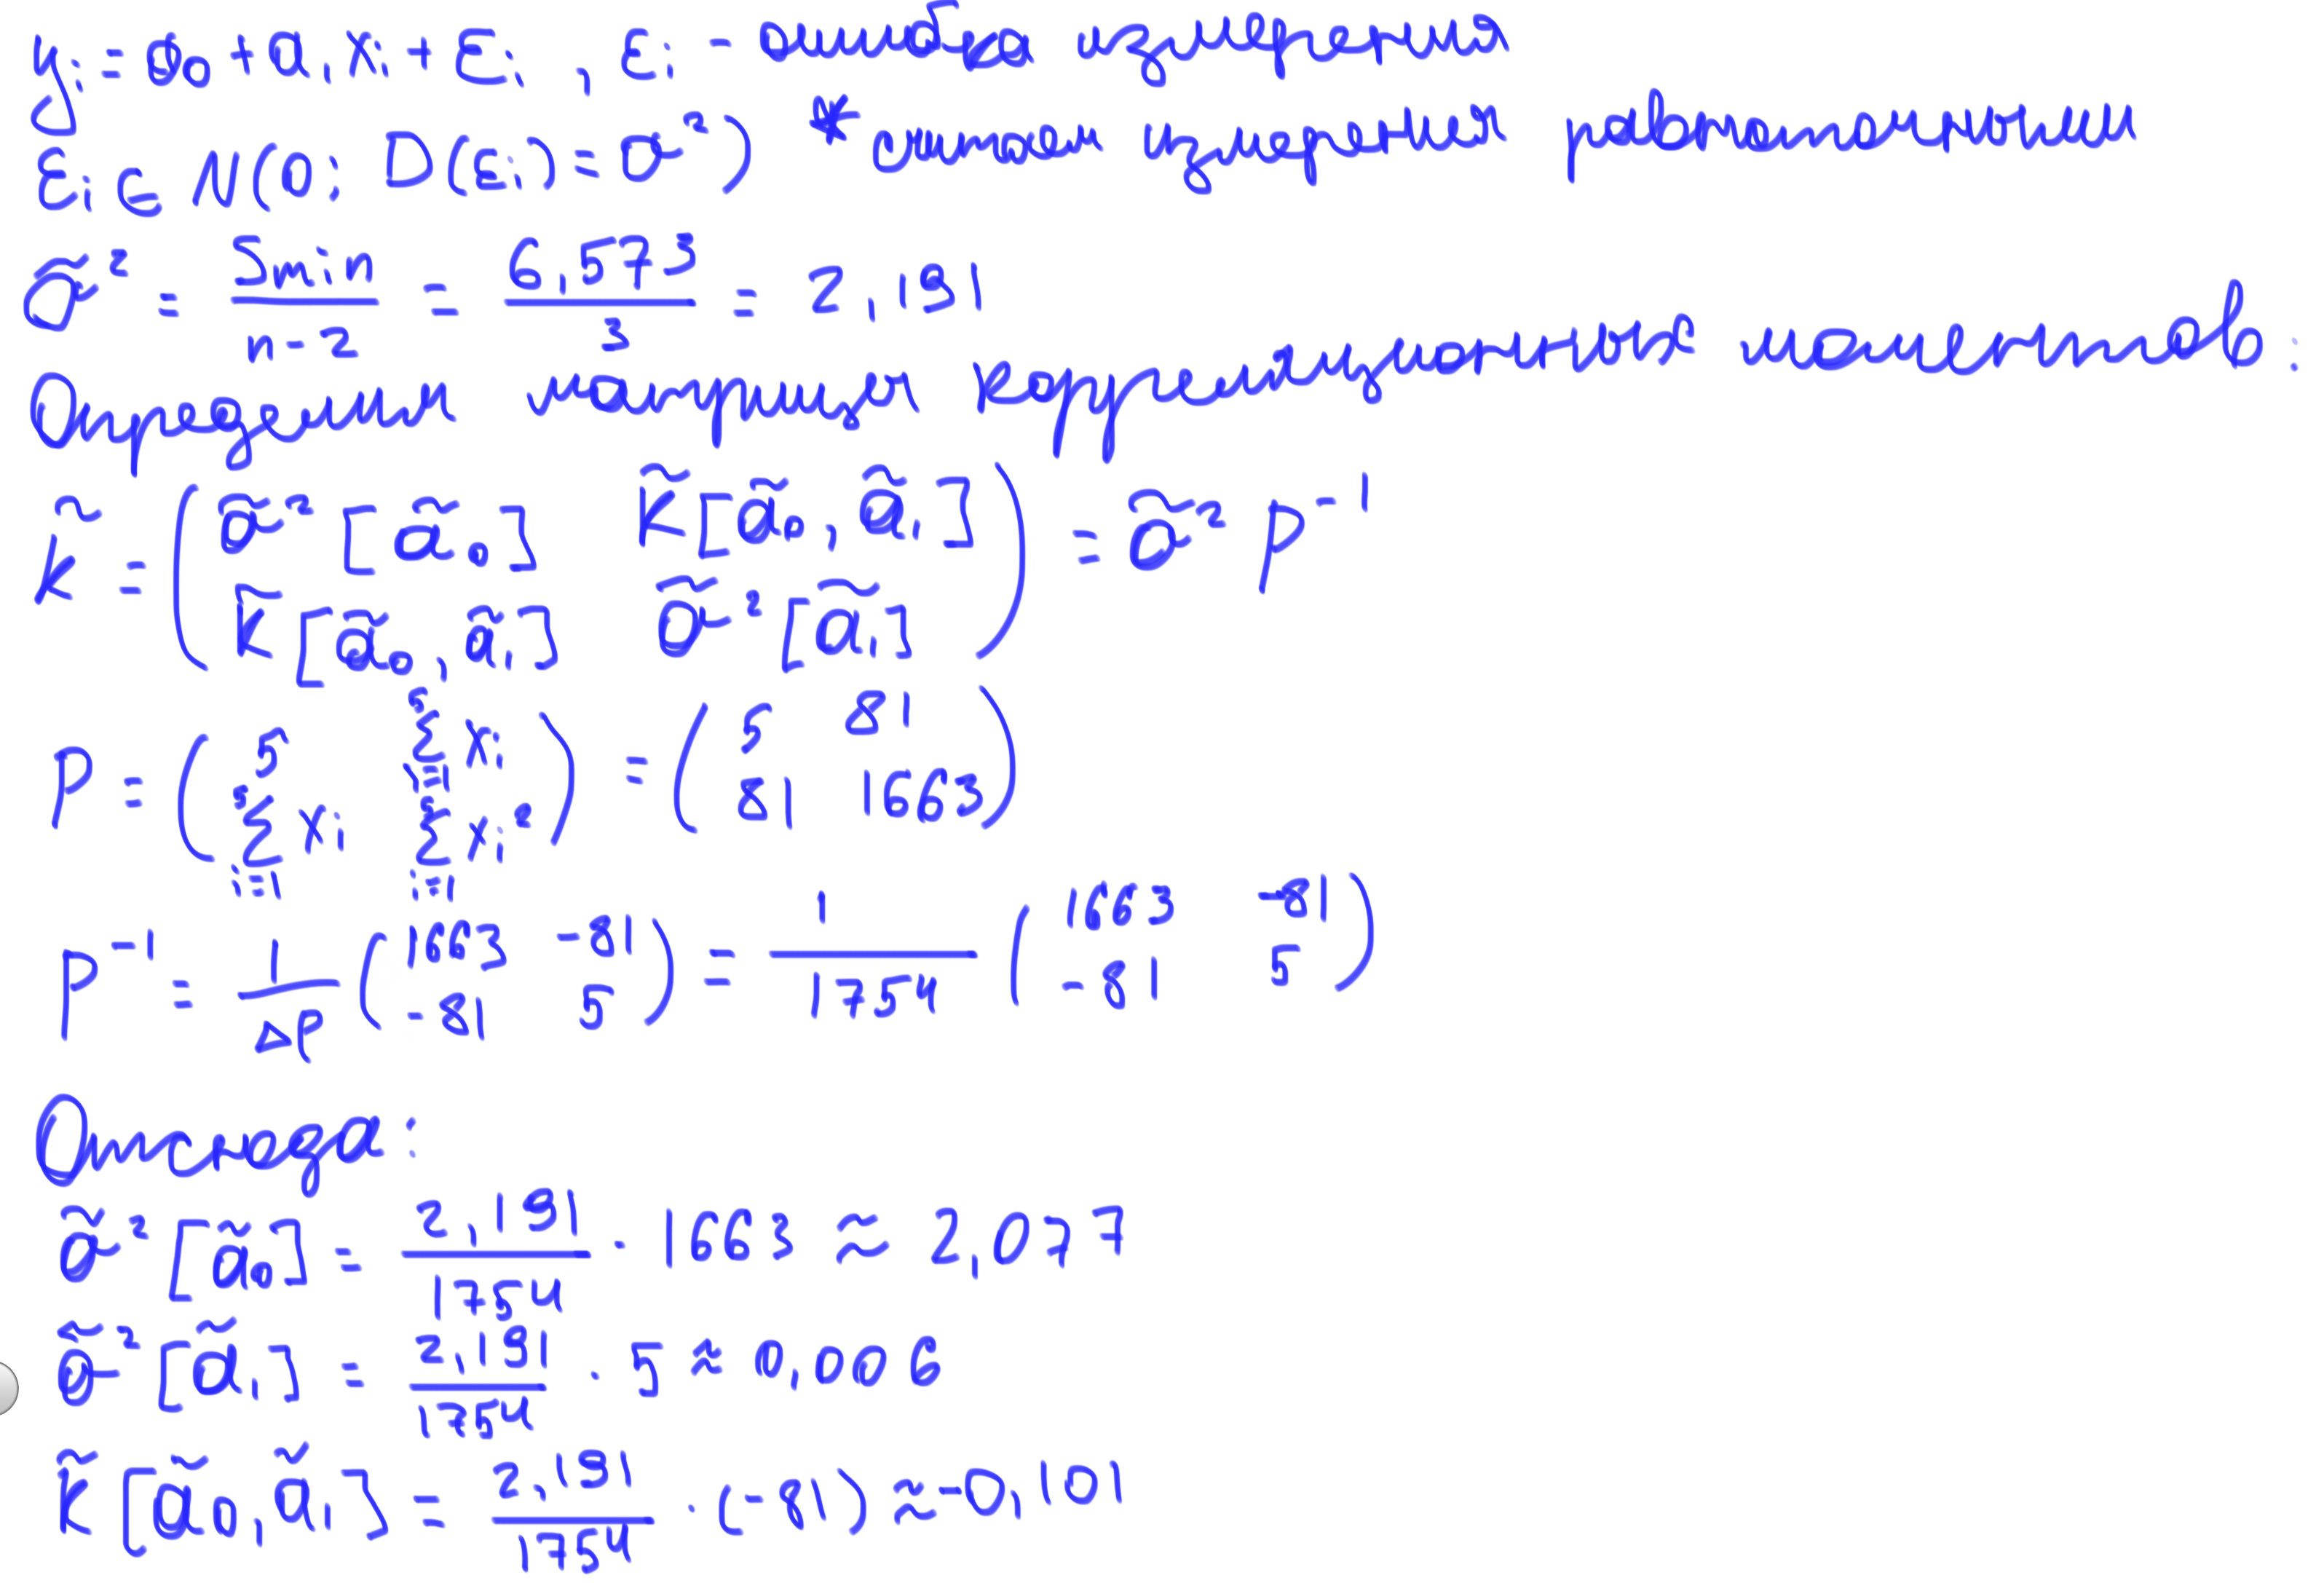 yᵢ = a₀ + a₁ xᵢ + Ɛᵢ , Ɛᵢ - ошибка измерения
Ɛᵢ ∈ N(0; D(Ɛᵢ) = σ²) * считаем измерения равноточными
σ̃² = Smin / (n-2) = 6,573 / 3 = 2,191
Определим матрицу корреляционных моментов:
K̃ = ( σ̃²[ã₀] K̃[ã₀, ã₁] ; K̃[ã₀, ã₁] σ̃²[ã₁] ) = σ̃² P⁻¹
P = ( 5 Σ⁵ᵢ₌₁ xᵢ ; Σ⁵ᵢ₌₁ xᵢ Σ⁵ᵢ₌₁ xᵢ² ) = ( 5 81 ; 81 1663 )
P⁻¹ = 1/ΔP ( 1663 -81 ; -81 5 ) = 1/1754 ( 1663 -81 ; -81 5 )
Отсюда:
σ̃²[ã₀] = 2,191/1754 · 1663 ≈ 2,077
σ̃²[ã₁] = 2,191/1754 · 5 ≈ 0,006
K̃[ã₀, ã₁] = 2,191/1754 · (-81) ≈ -0,101